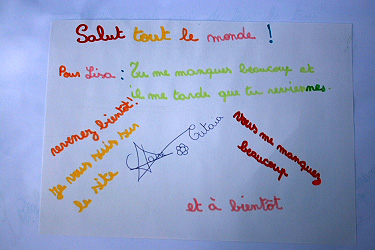 Salut tout le monde !
Pour Lisa : Tu me manques beaucoup et
il me tarde que tu reviennes.
revenez bientôt !
je vous suis sur
le site
vous me manquez
beaucoup
et à bientôt